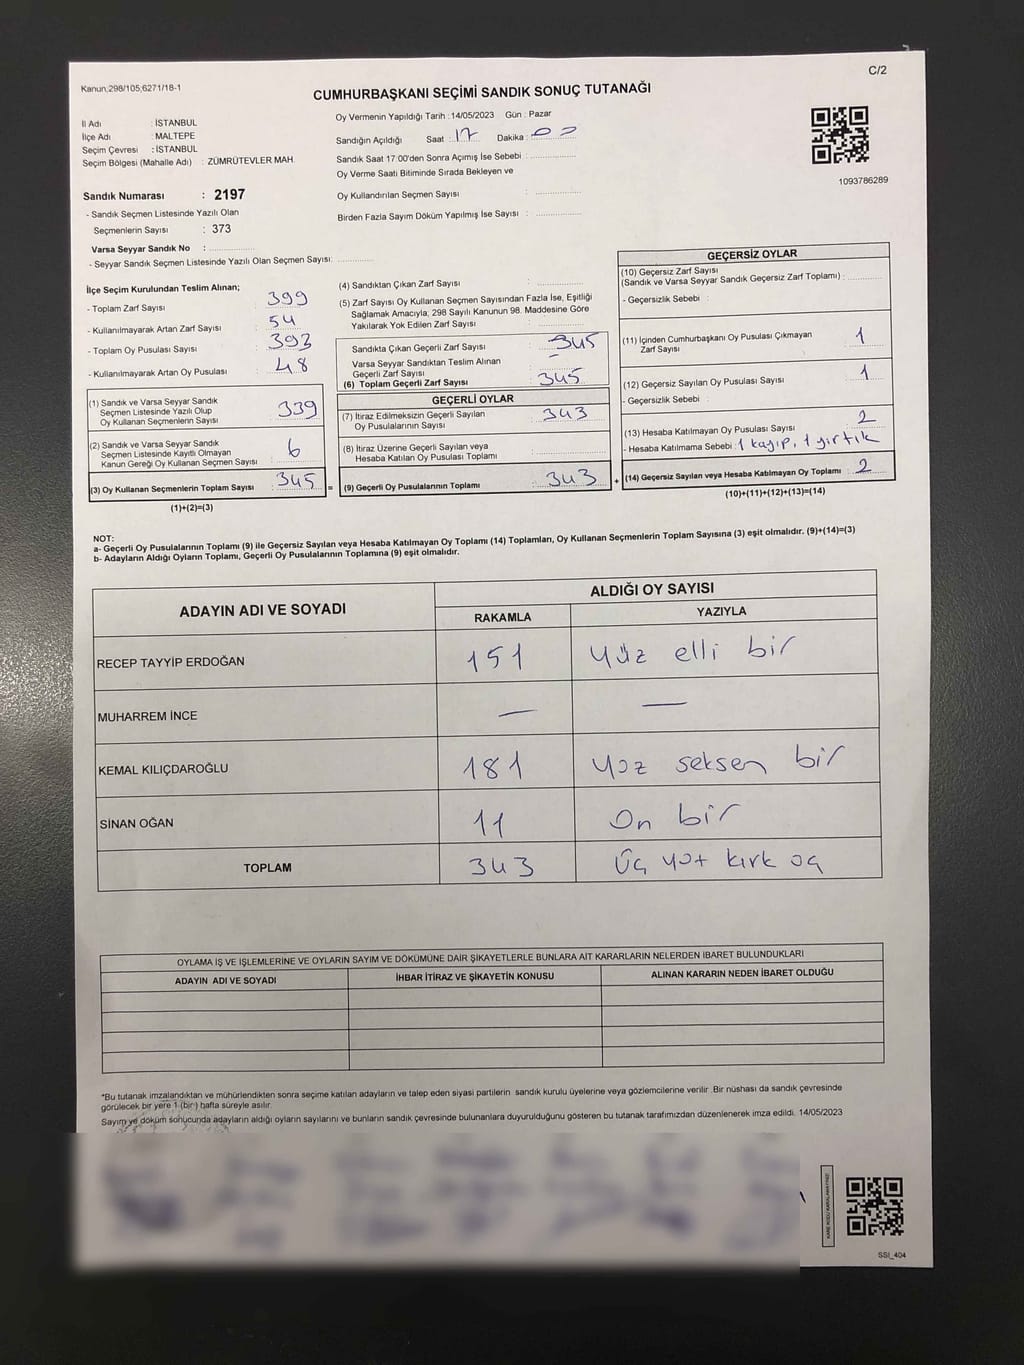 C/2
Kanun;298/105;6271/18-1
CUMHURBAŞKANI SEÇİMİ SANDIK SONUÇ TUTANAĞI
İl Adı : İSTANBUL
İlçe Adı : MALTEPE
Seçim Çevresi : İSTANBUL
Seçim Bölgesi (Mahalle Adı) : ZÜMRÜTEVLER MAH.
Oy Vermenin Yapıldığı Tarih :14/05/2023 Gün : Pazar
Sandığın Açıldığı Saat : 17 Dakika : 00
Sandık Saat 17:00'den Sonra Açımış İse Sebebi :
Oy Verme Saati Bitiminde Sırada Bekleyen ve
Oy Kullandırılan Seçmen Sayısı :
Birden Fazla Sayım Döküm Yapılmış İse Sayısı :
1093786289
Sandık Numarası : 2197
- Sandık Seçmen Listesinde Yazılı Olan
Seçmenlerin Sayısı : 373
Varsa Seyyar Sandık No :
- Seyyar Sandık Seçmen Listesinde Yazılı Olan Seçmen Sayısı:
İlçe Seçim Kurulundan Teslim Alınan;
- Toplam Zarf Sayısı : 399
- Kullanılmayarak Artan Zarf Sayısı : 54
- Toplam Oy Pusulası Sayısı : 393
- Kullanılmayarak Artan Oy Pusulası : 48
(1) Sandık ve Varsa Seyyar Sandık
Seçmen Listesinde Yazılı Olup
Oy Kullanan Seçmenlerin Sayısı : 339
(2) Sandık ve Varsa Seyyar Sandık
Seçmen Listesinde Kayıtlı Olmayan
Kanun Gereği Oy Kullanan Seçmen Sayısı : 6
(3) Oy Kullanan Seçmenlerin Toplam Sayısı : 345 =
(1)+(2)=(3)
(4) Sandıktan Çıkan Zarf Sayısı :
(5) Zarf Sayısı Oy Kullanan Seçmen Sayısından Fazla İse, Eşitliği
Sağlamak Amacıyla; 298 Sayılı Kanunun 98. Maddesine Göre
Yakılarak Yok Edilen Zarf Sayısı :
Sandıkta Çıkan Geçerli Zarf Sayısı : 345
Varsa Seyyar Sandıktan Teslim Alınan
Geçerli Zarf Sayısı : –
(6) Toplam Geçerli Zarf Sayısı : 345
GEÇERLİ OYLAR
(7) İtiraz Edilmeksizin Geçerli Sayılan
Oy Pusulalarının Sayısı : 343
(8) İtiraz Üzerine Geçerli Sayılan veya
Hesaba Katılan Oy Pusulası Toplamı :
(9) Geçerli Oy Pusulalarının Toplamı : 343 +
GEÇERSİZ OYLAR
(10) Geçersiz Zarf Sayısı
(Sandık ve Varsa Seyyar Sandık Geçersiz Zarf Toplamı) :
- Geçersizlik Sebebi :
(11) İçinden Cumhurbaşkanı Oy Pusulası Çıkmayan
Zarf Sayısı : 1
(12) Geçersiz Sayılan Oy Pusulası Sayısı : 1
- Geçersizlik Sebebi :
(13) Hesaba Katılmayan Oy Pusulası Sayısı : 2
- Hesaba Katılmama Sebebi : 1 kayıp, 1 yırtık
(14) Geçersiz Sayılan veya Hesaba Katılmayan Oy Toplamı : 2
(10)+(11)+(12)+(13)=(14)
NOT:
a- Geçerli Oy Pusulalarının Toplamı (9) ile Geçersiz Sayılan veya Hesaba Katılmayan Oy Toplamı (14) Toplamları, Oy Kullanan Seçmenlerin Toplam Sayısına (3) eşit olmalıdır. (9)+(14)=(3)
b- Adayların Aldığı Oyların Toplamı, Geçerli Oy Pusulalarının Toplamına (9) eşit olmalıdır.
ADAYIN ADI VE SOYADI ALDIĞI OY SAYISI
RAKAMLA YAZIYLA
RECEP TAYYİP ERDOĞAN 151 Yüz elli bir
MUHARREM İNCE — —
KEMAL KILIÇDAROĞLU 181 Yüz seksen bir
SİNAN OĞAN 11 On bir
TOPLAM 343 Üç yüz kırk üç
OYLAMA İŞ VE İŞLEMLERİNE VE OYLARIN SAYIM VE DÖKÜMÜNE DAİR ŞİKAYETLERLE BUNLARA AİT KARARLARIN NELERDEN İBARET BULUNDUKLARI
ADAYIN ADI VE SOYADI İHBAR İTİRAZ VE ŞİKAYETİN KONUSU ALINAN KARARIN NEDEN İBARET OLDUĞU
*Bu tutanak imzalandıktan ve mühürlendikten sonra seçime katılan adayların ve talep eden siyasi partilerin sandık kurulu üyelerine veya gözlemcilerine verilir .Bir nüshası da sandık çevresinde
görülecek bir yere 1 (bir) hafta süreyle asılır.
Sayım ve döküm sonucunda adayların aldığı oyların sayılarını ve bunların sandık çevresinde bulunanlara duyurulduğunu gösteren bu tutanak tarafımızdan düzenlenerek imza edildi. 14/05/2023
KARE KODU KARALAMAYINIZ!
SSI_404